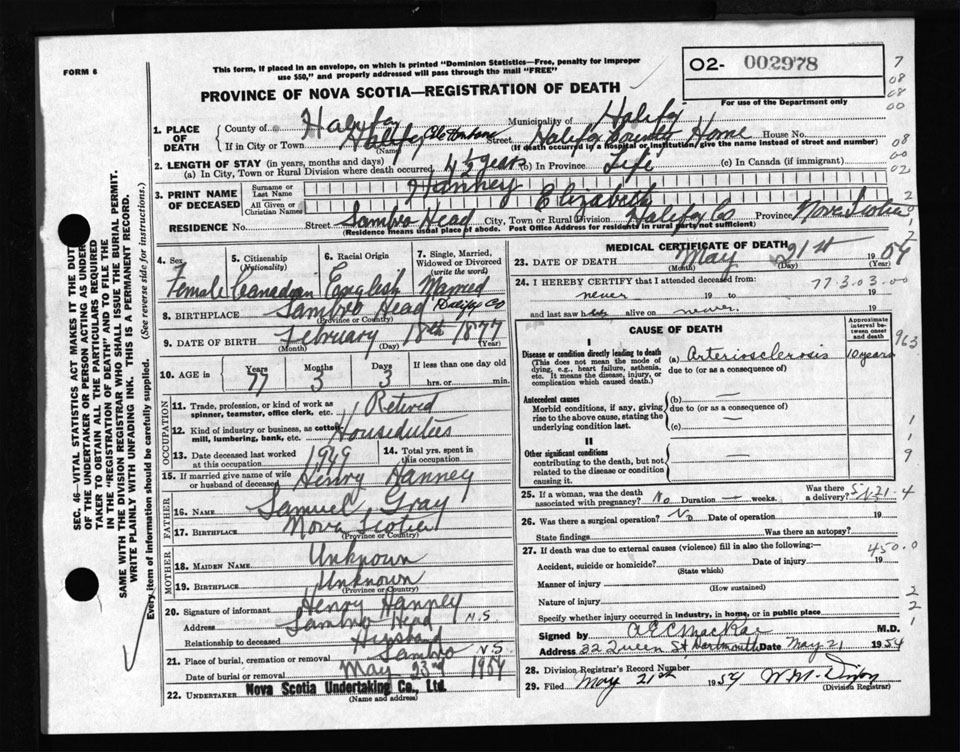 FORM 6
This form, if placed in an envelope, on which is printed "Dominion Statistics—Free, penalty for improper
use $50," and properly addressed will pass through the mail "FREE"
PROVINCE OF NOVA SCOTIA—REGISTRATION OF DEATH
O2- 002978
For use of the Department only
7
08
08
00
08
00
02
1. PLACE OF DEATH
County of Halifax Municipality of Halifax
If in City or Town Halifax Street Halifax County Home House No.
(Name) (If death occurred in a hospital or institution, give the name instead of street and number)
2. LENGTH OF STAY (in years, months and days)
(a) In City, Town or Rural Division where death occurred 4½ years (b) in Province Life (c) in Canada (if immigrant)
3. PRINT NAME OF DECEASED
Surname or Last Name Hanney
All Given or Christian Names Elizabeth
RESIDENCE No. Street Sambro Head City, Town or Rural Division Halifax Co Province Nova Scotia
(Residence means usual place of abode. Post Office Address for residents in rural parts not sufficient)
4. Sex Female
5. Citizenship (Nationality) Canadian
6. Racial Origin English
7. Single, Married, Widowed or Divorced (write the word) Married
8. BIRTHPLACE Sambro Head Halifax Co
(Province or Country)
9. DATE OF BIRTH February 18th 1877
(Month) (Day) (Year)
10. AGE is Years 77 Months 3 Days 3 If less than one day old hrs. or min.
OCCUPATION
11. Trade, profession, or kind of work as spinner, teamster, office clerk, etc. Retired
12. Kind of industry or business, as cotton mill, lumbering, bank, etc. Houseduties
13. Date deceased last worked at this occupation 1949
14. Total yrs. spent in this occupation
15. If married give name of wife or husband of deceased Henry Hanney
FATHER
16. NAME Samuel Gray
17. BIRTHPLACE Nova Scotia
(Province or Country)
MOTHER
18. MAIDEN NAME Unknown
19. BIRTHPLACE Unknown
(Province or Country)
20. Signature of informant Henry Hanney
Address Sambro Head N.S
Relationship to deceased Husband
21. Place of burial, cremation or removal Sambro N.S.
Date of burial or removal May 23rd 1954
22. UNDERTAKER Nova Scotia Undertaking Co., Ltd.
(Name and address)
MEDICAL CERTIFICATE OF DEATH
23. DATE OF DEATH May 21st 1954
(Month) (Day) (Year)
24. I HEREBY CERTIFY that I attended deceased from: 77.03.00
never 19 to 19
and last saw h alive on never. 19
CAUSE OF DEATH
Approximate interval between onset and death
963
I
Disease or condition directly leading to death
(This does not mean the mode of dying, e.g., heart failure, asthenia, etc. It means the disease, injury, or complication which caused death.)
(a) Arteriosclerosis 10 years
due to (or as a consequence of)
Antecedent causes
Morbid conditions, if any, giving rise to the above cause, stating the underlying condition last.
(b) —
due to (or as a consequence of)
(c) —
II
Other significant conditions
contributing to the death, but not related to the disease or condition causing it.
1
1
9
25. If a woman, was the death associated with pregnancy? No Duration — weeks. Was there a delivery?
26. Was there a surgical operation? No Date of operation 19
State findings Was there an autopsy?
27. If death was due to external causes (violence) fill in also the following:— 450.0
Accident, suicide or homicide? Date of injury 19
(State which)
Manner of injury
(How sustained)
Nature of injury
Specify whether injury occurred in industry, in home, or in public place
2
2
1
Signed by A E C MacRae M.D.
Address 32 Queen St Dartmouth Date May 21 1954
28. Division Registrar's Record Number
29. Filed May 21st 1954 W. M. Dixon
(Division Registrar)
SEC. 46—VITAL STATISTICS ACT MAKES IT THE DUTY
OF THE UNDERTAKER OR PERSON ACTING AS UNDER-
TAKER TO OBTAIN ALL THE PARTICULARS REQUIRED
IN THE "REGISTRATION OF DEATH" AND TO FILE THE
SAME WITH THE DIVISION REGISTRAR WHO SHALL ISSUE THE BURIAL PERMIT.
WRITE PLAINLY WITH UNFADING INK. THIS IS A PERMANENT RECORD.
Every item of information should be carefully supplied. (See reverse side for instructions.)